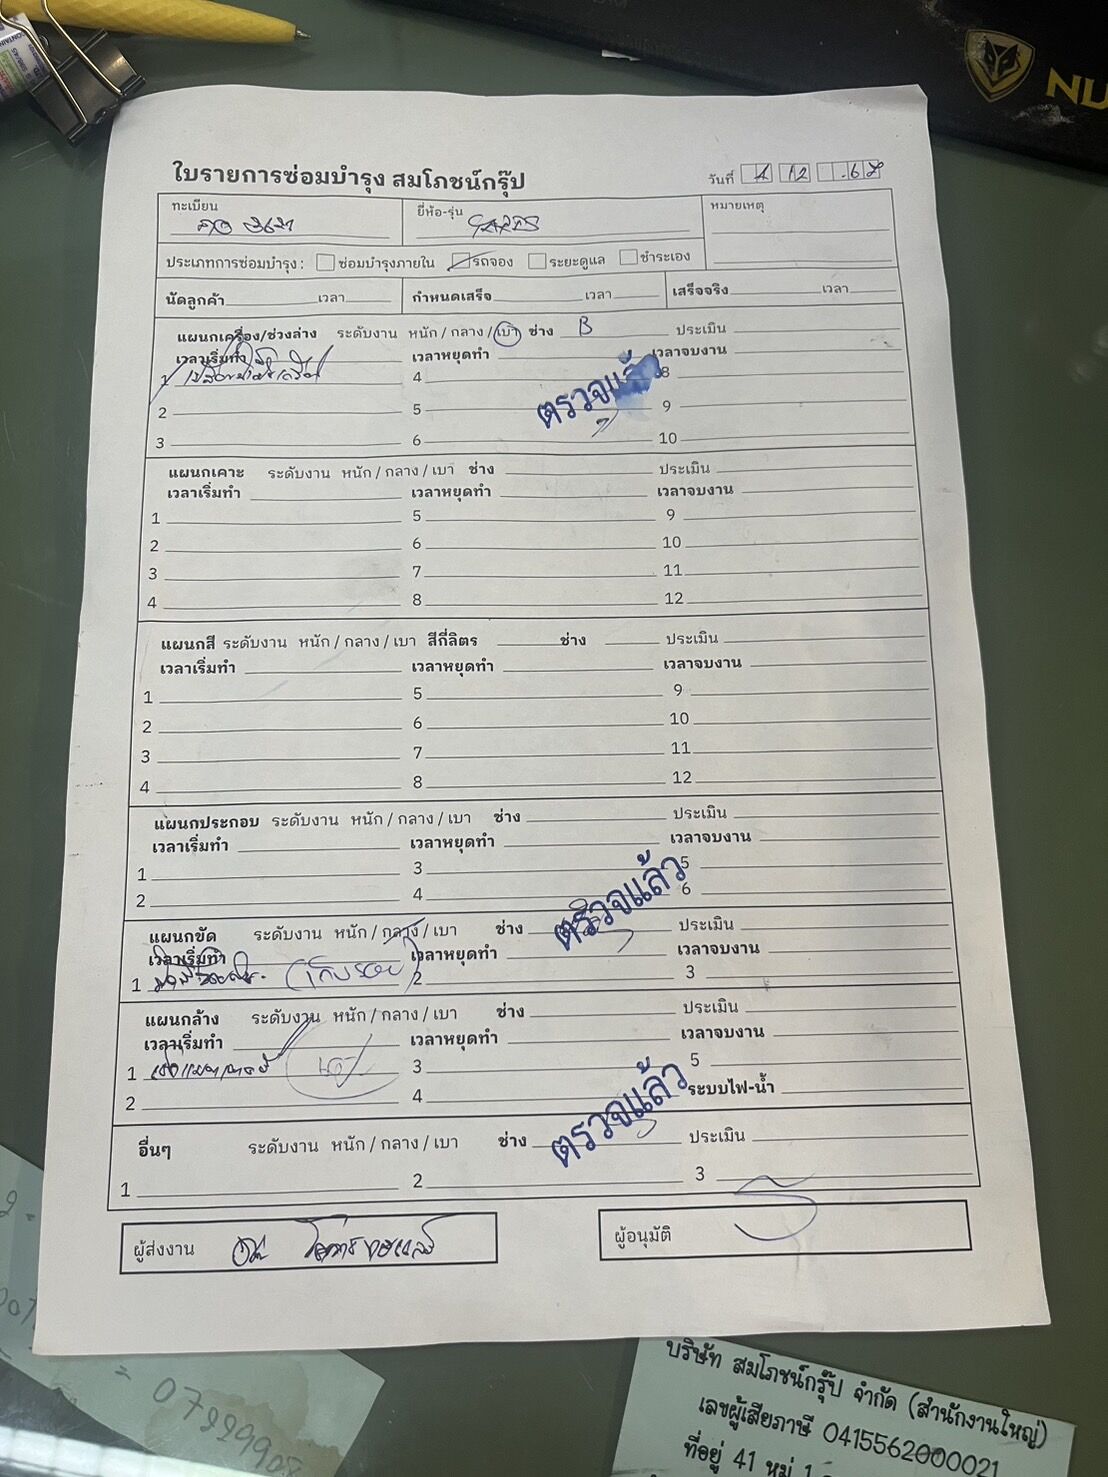 NU
ใบรายการซ่อมบำรุง สมโภชน์กรุ๊ป
วันที่ 4 12 67
ทะเบียน
ยี่ห้อ-รุ่น YARIS
หมายเหตุ
ประเภทการซ่อมบำรุง: ซ่อมบำรุงภายใน รถจอง ระยะดูแล ชำระเอง
นัดลูกค้า เวลา กำหนดเสร็จ เวลา เสร็จจริง เวลา
แผนกเครื่อง/ช่วงล่าง ระดับงาน หนัก / กลาง / เบา ช่าง B ประเมิน
เวลาเริ่มทำ เวลาหยุดทำ เวลาจบงาน
1 เปลี่ยนน้ำมันเครื่อง 4 8
ตรวจแล้ว
2 5 9
3 6 10
แผนกเคาะ ระดับงาน หนัก / กลาง / เบา ช่าง ประเมิน
เวลาเริ่มทำ เวลาหยุดทำ เวลาจบงาน
1 5 9
2 6 10
3 7 11
4 8 12
แผนกสี ระดับงาน หนัก / กลาง / เบา สีกี่ลิตร ช่าง ประเมิน
เวลาเริ่มทำ เวลาหยุดทำ เวลาจบงาน
1 5 9
2 6 10
3 7 11
4 8 12
แผนกประกอบ ระดับงาน หนัก / กลาง / เบา ช่าง ประเมิน
เวลาเริ่มทำ เวลาหยุดทำ เวลาจบงาน
1 3 5
2 4 6
ตรวจแล้ว
แผนกขัด ระดับงาน หนัก / กลาง / เบา ช่าง ประเมิน
เวลาเริ่มทำ เวลาหยุดทำ เวลาจบงาน
1 (เก็บรอบ) 2 3
แผนกล้าง ระดับงาน หนัก / กลาง / เบา ช่าง ประเมิน
เวลาเริ่มทำ เวลาหยุดทำ เวลาจบงาน
1 3 5
2 4 ระบบไฟ-น้ำ
ตรวจแล้ว
อื่นๆ ระดับงาน หนัก / กลาง / เบา ช่าง ประเมิน
1 2 3
ผู้ส่งงาน
ผู้อนุมัติ
บริษัท สมโภชน์กรุ๊ป จำกัด (สำนักงานใหญ่)
เลขผู้เสียภาษี 0415562000021
ที่อยู่ 41 หมู่ 1